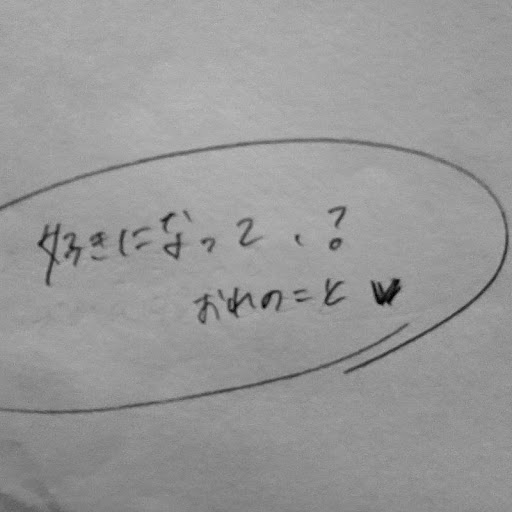 好きになって、?
おれのこと♥